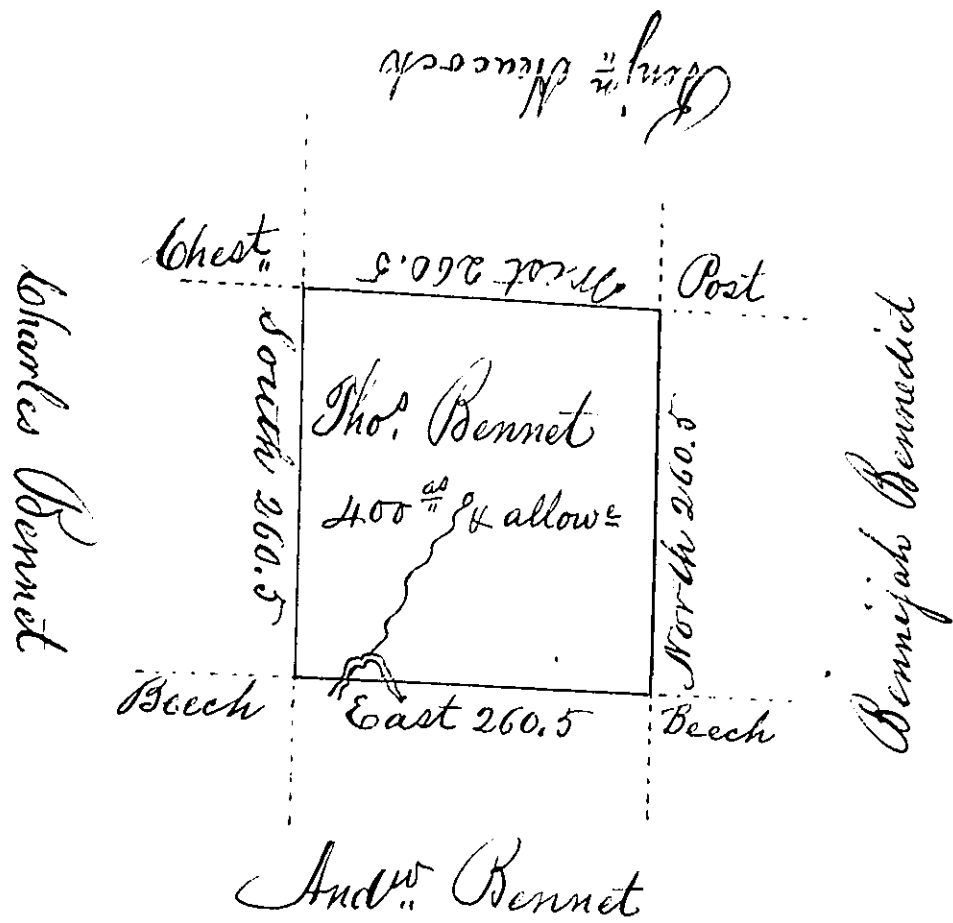 Benjn Heacock
Chest"
West 260.5
Post
Charles Bennet
South 260.5
Thos. Bennet
400 as & allowe
North 260.5
Bennijah Bennedict
Beech
East 260.5
Beech
Andw Bennet